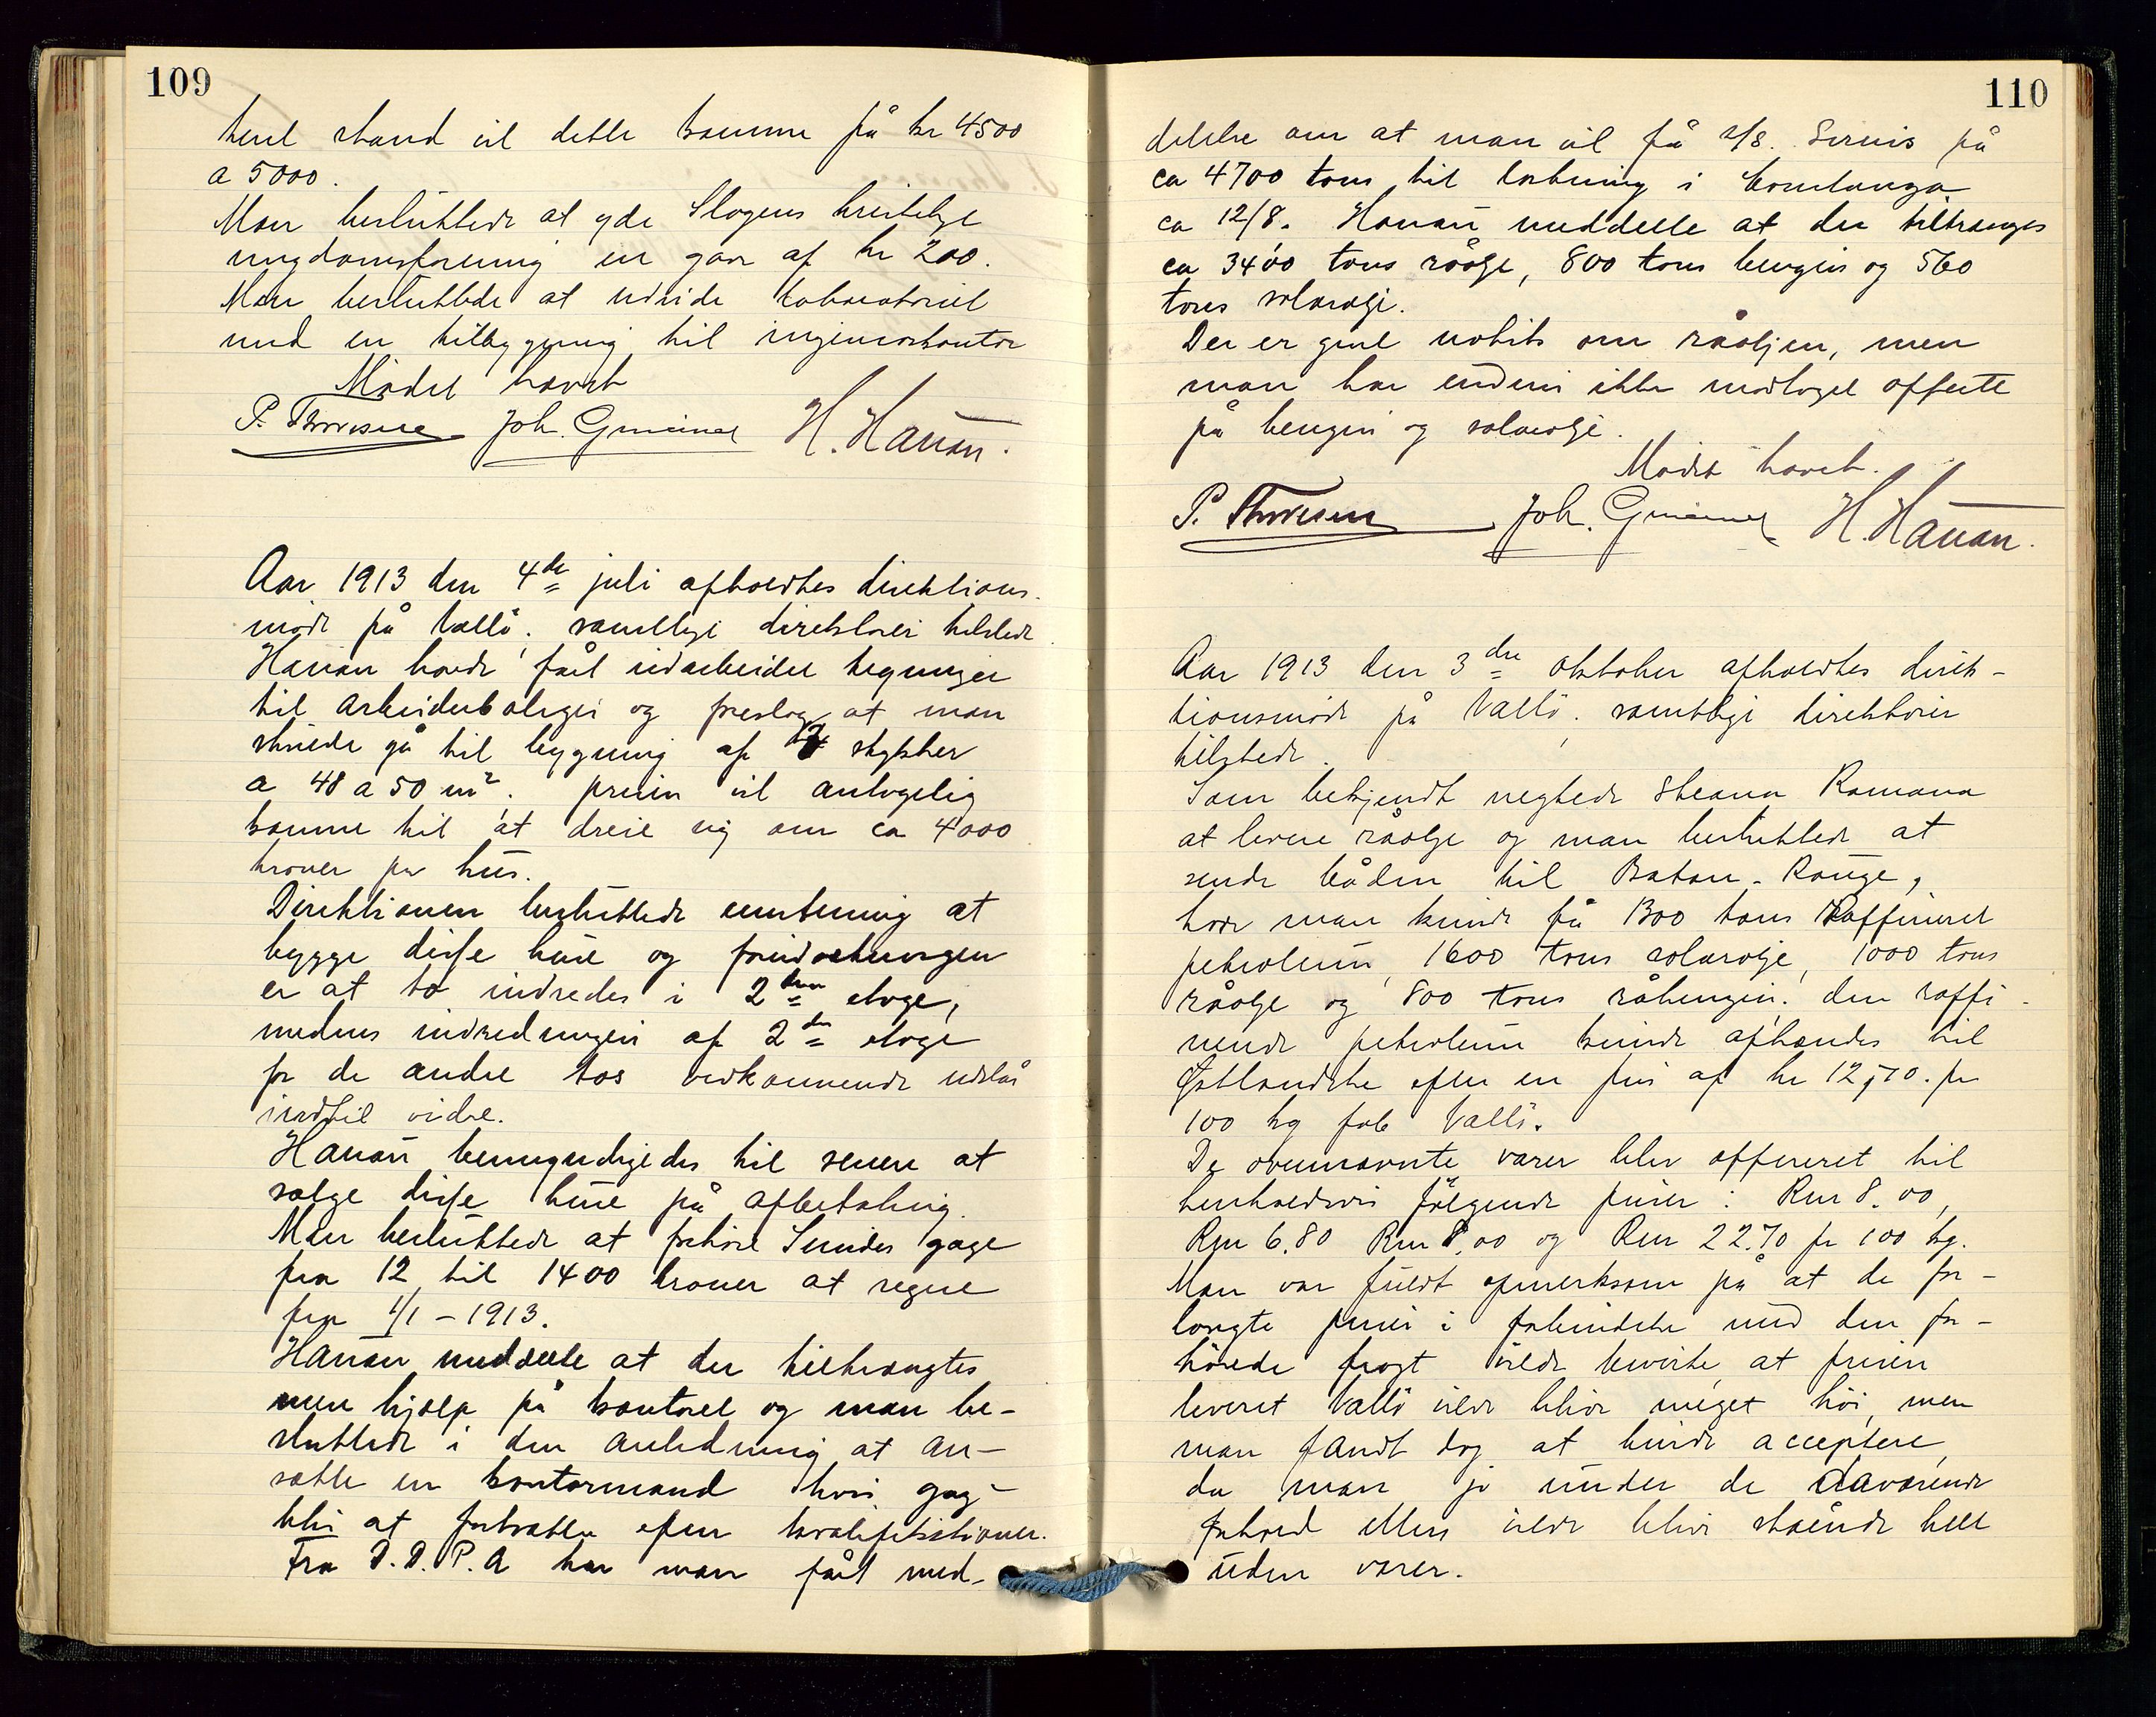 109
hest stand vil dette komme på kr 4500
a 5000.
Man besluttede at yde Slagens kristelige
ungdomsforening en gave af kr 200.
Man besluttede at udvide laboratoriet
med en tilbygning til ingeniørkontor
Mødet hævet
P. Thoresen Joh. H. Hauan.
Aar 1913 den 4de juli afholdtes direktions-
møde på Vallö. samtlige direktører tilstede.
Hauan havde fået udarbeidet tegninger
til arbeiderboliger og foreslog at man
skulde gå til bygning af stykker
a 48 a 50 m². prisen vil antagelig
komme til at dreie sig om ca 4000
kroner pr hus.
Direktionen besluttede enstemmig at
bygge disse huse og forudsetningen
er at to indredes i 2den etage,
medens indredningen af 2den etage
for de andre tos vedkommende udstår
indtil videre.
Hauan bemyndigedes til senere at
sælge disse huse på afbetaling.
Man besluttede at forhöie Sundes gage
fra 12 til 1400 kroner at regne
fra 1/1 – 1913.
Hauan meddeelte at der tiltrængtes
mere hjælp på kontoret og man be-
sluttede i den anledning at an-
sætte en kontormand hvis gage
blir at fortsætte efter kvalifikationer.
Fra D.D.P.A har man fået med-
110
delelse om at man vil få s/s. Servis på
ca 4700 tons til lastning i Constanza
ca 12/8. Hauan meddelte at der tiltrænges
ca 3400 tons råolje, 800 tons bengin og 560
tons solarolje.
Der er gjort notits om råoljen, men
man har endnu ikke modtaget offerte
på bengin og solarolje.
Mødet hævet.
P. Thoresen Joh. H. Hauan.
Aar 1913 den 3die oktober afholdtes direk-
tionsmöde på Vallö. samtlige direktörer
tilstede.
Som bekjendt negtede Steaua Romana
at levere råolje og man besluttede at
sende båden til Baton-Rouge,
hvor man kunde få 1300 tons Raffineret
petroleum, 1600 tons solarolje, 1000 tons
råolje og 800 tons råbengin. den raffi-
nerede petroleum kunde afhændes til
Østlandske efter en pris af kr 12,70. pr
100 kg fob Vallö.
De ovennævnte varer blev offereret til
henholdsvis fölgende priser: Rm 8.00,
Rm 6.80 Rm 8,00 og Rm 22.70 pr 100 kg.
Man var fuldt opmerksom på at de for-
langte priser i forbindelse med den for-
höiede fragt vilde bevirke at prisen
leveret Vallö vilde blive meget höi, men
man fandt dog at kunde acceptere,
da man jo under de daværende
forhold ellers vilde blive stående helt
uden varer.